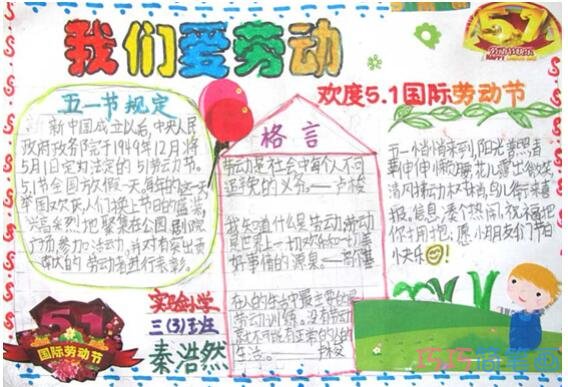 我们爱劳动
5.1
HAPPY
欢度5.1国际劳动节
五一节规定
新中国成立以后,中央人民
政府政务院于1949年12月将
5月1日定为法定的51劳动节。
5.1节全国放假一天。每年的这一天
举国欢庆人们换上节日的盛装,
兴高采烈地聚集在公园剧院
广场,参加
活动,并对有突出贡
献的劳动者进行表彰。
格言
劳动是社会中每个人不可
避免的义务。——卢梭
我知道什么是劳动:劳动
是世界上一切欢乐和一切美
好事情的源泉。——高尔基
在人的生活中最主要的是
劳动训练。没有劳动
就不可能有正常的人的
生活。——卢梭
五一悄悄来到,阳光普照着
要伸伸懒腰,花儿露出微笑,
清风
鸟儿衔来喜
报,信息凑个热闹,祝福把
你
愿小朋友们节日
快乐
51
国际劳动节
实验小学
三(3)班
秦浩然
巧巧简笔画